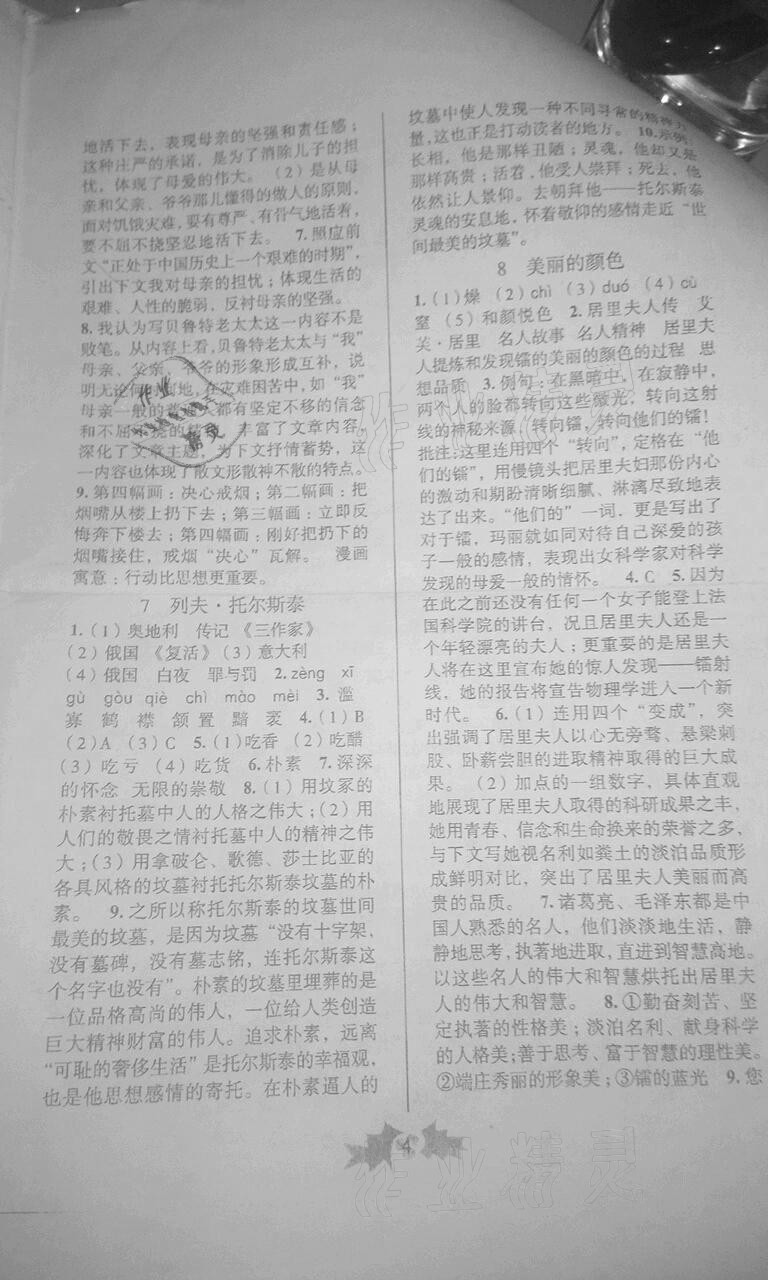 地活下去，表现母亲的坚强和责任感；
这种庄严的承诺，是为了消除儿子的担
忧，体现了母爱的伟大。（2）是从母
亲和父亲、爷爷那儿懂得的做人的原则，
面对饥饿灾难，要有尊严、有骨气地活着，
要不屈不挠坚忍地活下去。 7.照应前
文“正处于中国历史上一个艰难的时期”，
引出下文我对母亲的担忧；体现生活的
艰难、人性的脆弱，反衬母亲的坚强。
8.我认为写贝鲁特老太太这一内容不是
败笔。从内容上看，贝鲁特老太太与“我”
母亲、父亲、爷爷的形象形成互补，说
明无论何时何地，在灾难困苦中，如“我”
母亲一般的普通人都有坚定不移的信念
和不屈不挠的精神，丰富了文章内容，
深化了文章主题，为下文抒情蓄势，这
一内容也体现了散文形散神不散的特点。
9.第四幅画：决心戒烟；第二幅画：把
烟嘴从楼上扔下去；第三幅画：立即反
悔奔下楼去；第四幅画：刚好把扔下的
烟嘴接住，戒烟“决心”瓦解。 漫画
寓意：行动比思想更重要。
7 列夫·托尔斯泰
1.（1）奥地利 传记 《三作家》
（2）俄国 《复活》（3）意大利
（4）俄国 白夜 罪与罚 2.zèng xī
gù gòu qiè chì mào mèi 3.滥
寡 鹤 襟 颔 置 黯 霭 4.（1）B
（2）A （3）C 5.（1）吃香 （2）吃醋
（3）吃亏 （4）吃货 6.朴素 7.深深
的怀念 无限的崇敬 8.（1）用坟冢的
朴素衬托墓中人的人格之伟大；（2）用
人们的敬畏之情衬托墓中人的精神之伟
大；（3）用拿破仑、歌德、莎士比亚的
各具风格的坟墓衬托托尔斯泰坟墓的朴
素。 9.之所以称托尔斯泰的坟墓世间
最美的坟墓，是因为坟墓“没有十字架，
没有墓碑，没有墓志铭，连托尔斯泰这
个名字也没有”。朴素的坟墓里埋葬的是
一位品格高尚的伟人，一位给人类创造
巨大精神财富的伟人。追求朴素，远离
“可耻的奢侈生活”是托尔斯泰的幸福观，
也是他思想感情的寄托。在朴素逼人的
坟墓中使人发现一种不同寻常的精神力
量，这也正是打动读者的地方。 10.示例：
长相，他是那样丑陋；灵魂，他却又是
那样高贵；活着，他受人崇拜；死去，他
依然让人景仰。去朝拜他——托尔斯泰
灵魂的安息地，怀着敬仰的感情走近“世
间最美的坟墓”。
8 美丽的颜色
1.（1）燥 （2）chì （3）duó （4）cù
窒 （5）和颜悦色 2.居里夫人传 艾
芙·居里 名人故事 名人精神 居里夫
人提炼和发现镭的美丽的颜色的过程 思
想品质 3.例句：在黑暗中，在寂静中，
两个人的脸都转向这些微光，转向这射
线的神秘来源，转向镭，转向他们的镭！
批注：这里连用四个“转向”，定格在“他
们的镭”，用慢镜头把居里夫妇的内心
的激动和期盼清晰细腻、淋漓尽致地表
达了出来。“他们的”一词，更是写出了
对于镭，玛丽就如同对待自己深爱的孩
子一般的感情，表现出女科学家对科学
发现的母爱一般的情怀。 4.C 5.因为
在此之前还没有任何一个女子能登上法
国科学院的讲台，况且居里夫人还是一
个年轻漂亮的夫人；更重要的是居里夫
人将在这里宣布她的惊人发现——镭射
线，她的报告将宣告物理学进入一个新
时代。 6.（1）连用四个“变成”，突
出强调了居里夫人以心无旁骛、悬梁刺
股、卧薪尝胆的进取精神取得的巨大成
果。 （2）加点的一组数字，具体直观
地展现了居里夫人取得的科研成果之丰，
她用青春、信念和生命换来的荣誉之多，
与下文写她视名利如粪土的淡泊品质形
成鲜明对比，突出了居里夫人美丽而高
贵的品质。 7.诸葛亮、毛泽东都是中
国人熟悉的名人，他们淡淡地生活，静
静地思考，执著地进取，直进到智慧高地。
以这些名人的伟大和智慧烘托出居里夫
人的伟大和智慧。 8.①勤奋刻苦、坚
定执著的性格美；淡泊名利、献身科学
的人格美；善于思考、富于智慧的理性美。
②端庄秀丽的形象美；③镭的蓝光 9.您
4
作业精灵